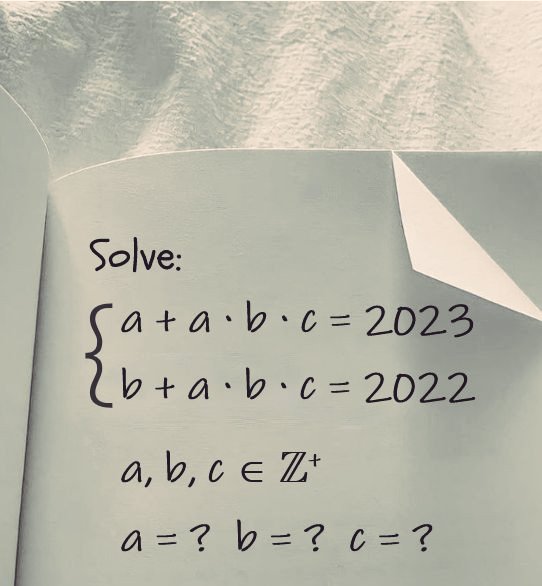 Solve:
a + a · b · c = 2023
b + a · b · c = 2022
a, b, c ∈ ℤ⁺
a = ? b = ? c = ?